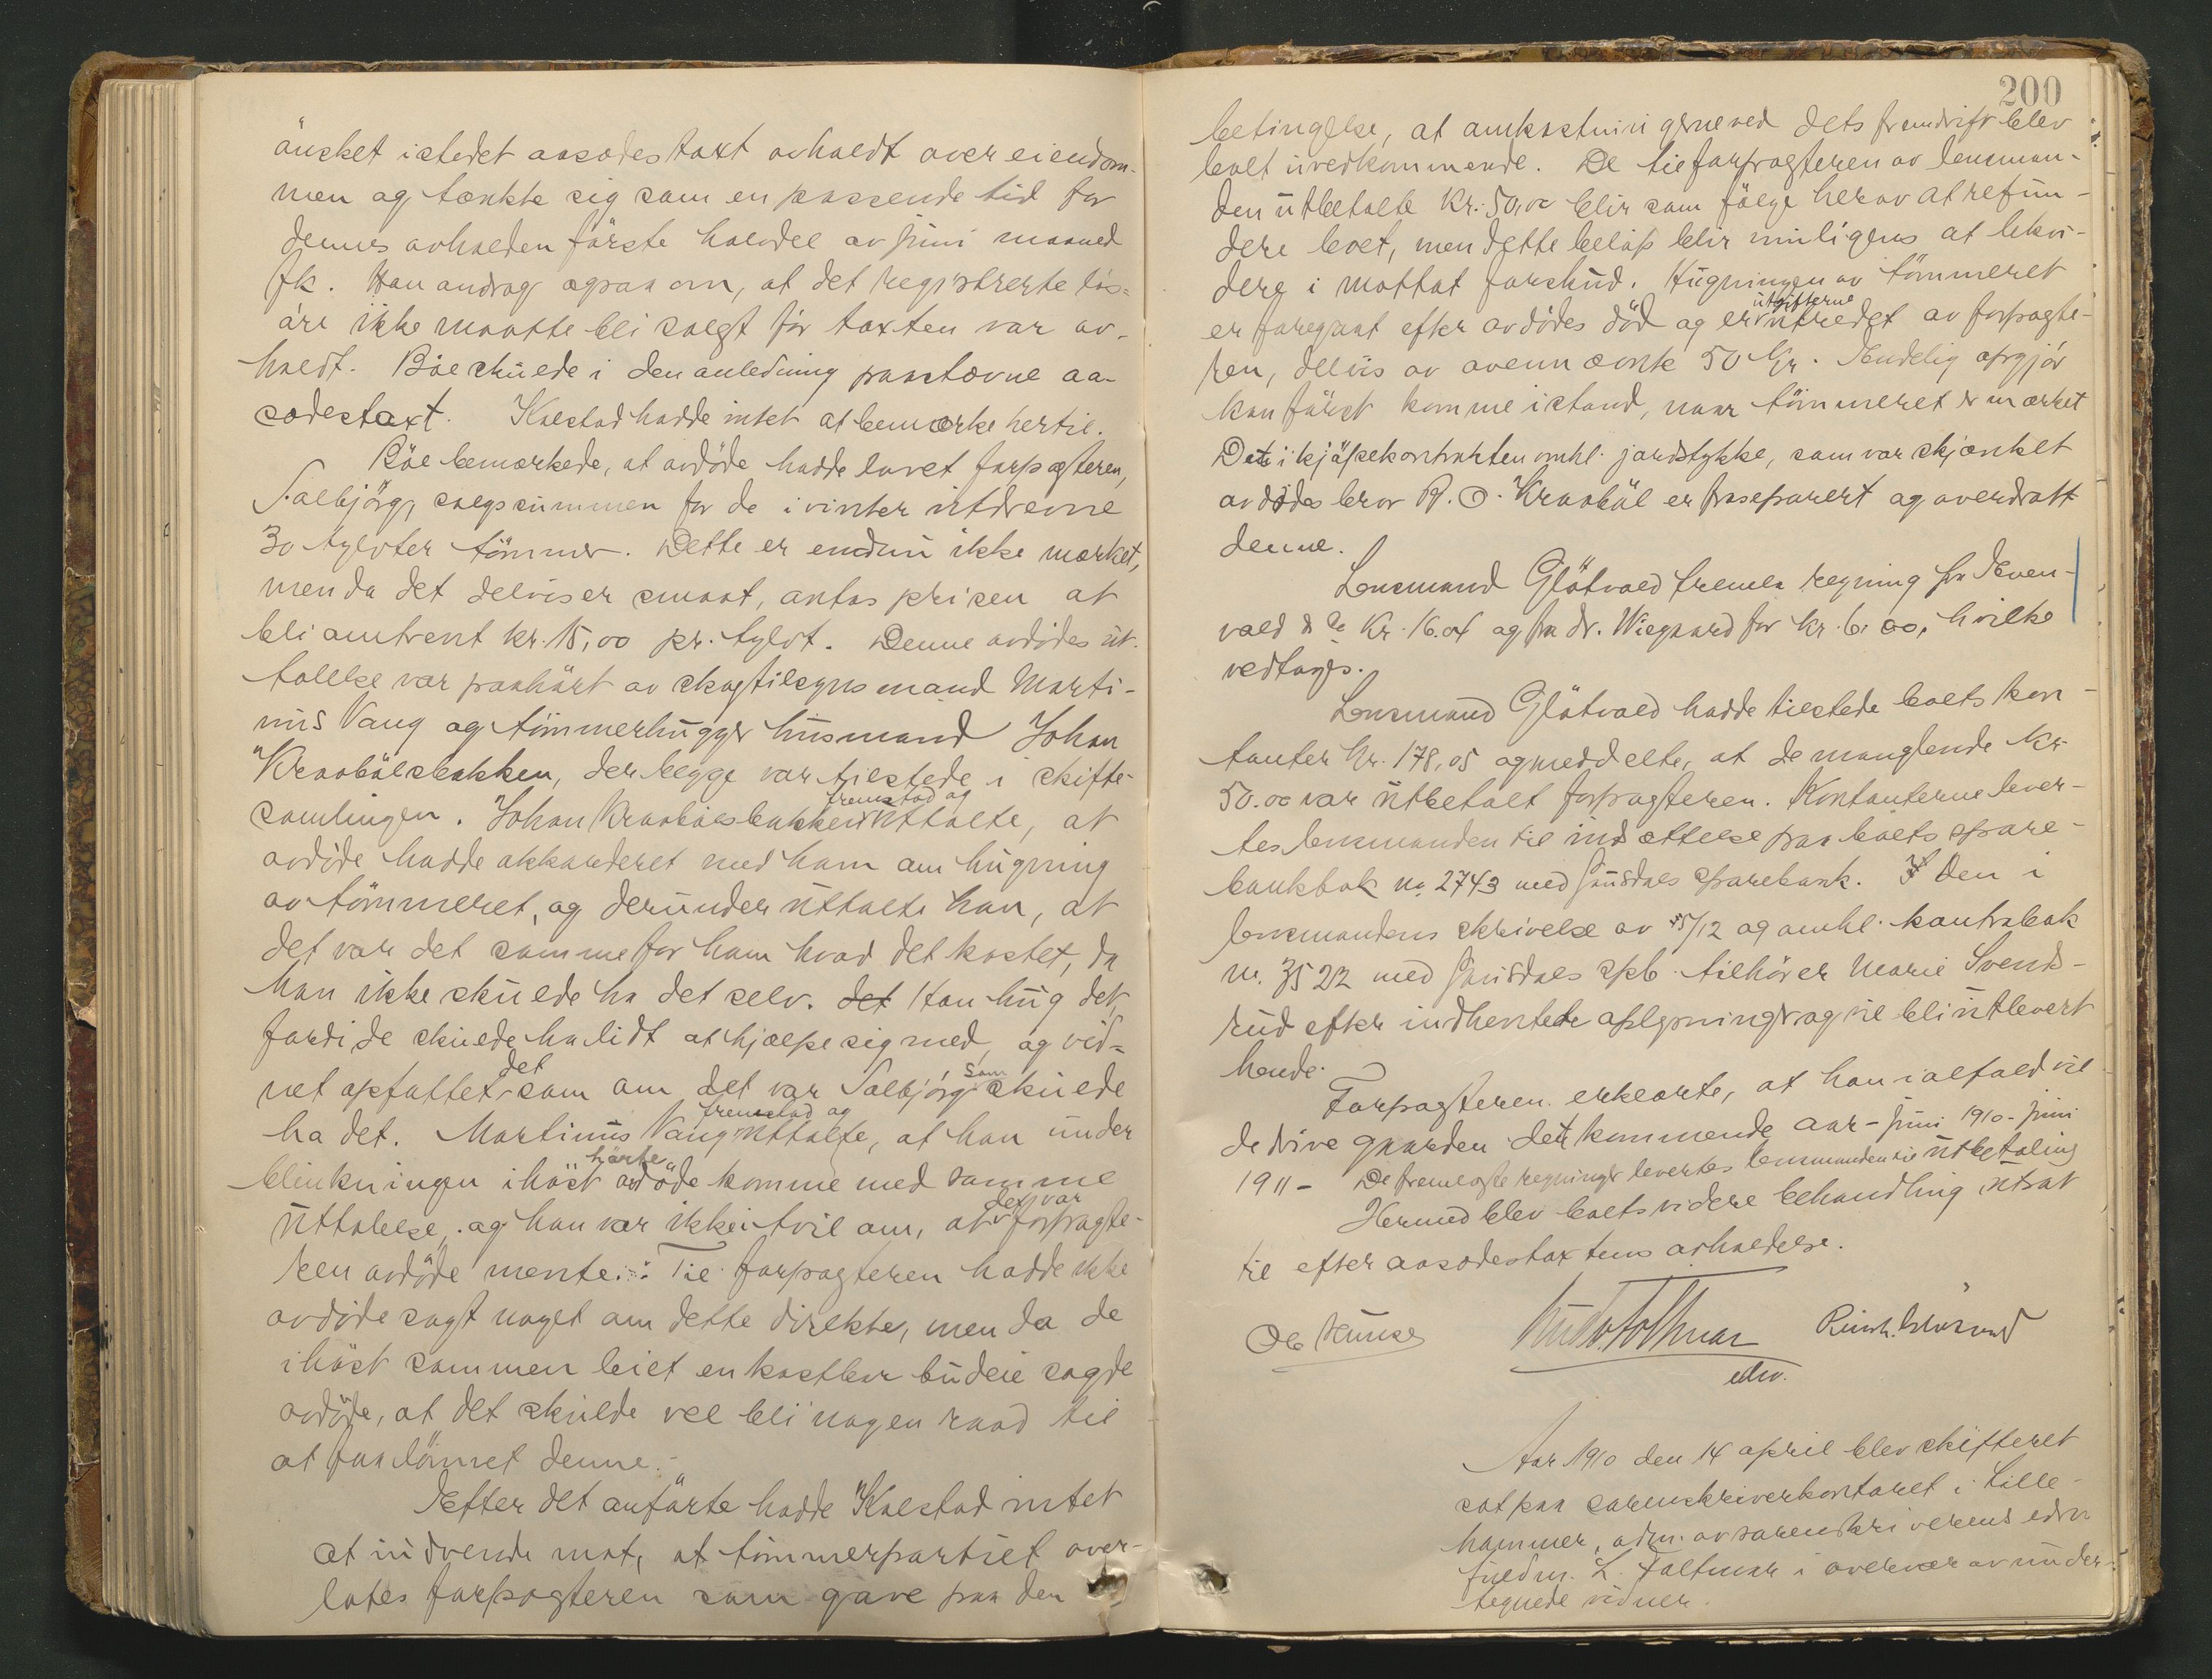 önsket istedet aasædestaxt avholdt over eiendom-
men og tænkte sig som en passende tid for
dennes avholden förste halvdel av juni maaned
fk. Han androg ogsaa om, at det registrerte lös-
öre ikke maatte bli solgt för taxten var av-
holdt. Böe skulde i den anledning paastævne aa-
sædestaxt. Kalstad hadde intet at bemærke hertil.
Böe bemærkede, at avdöde hadde lovet forpagteren,
Salbjörg, salgssummen for de i vinter utdrevne
30 tylvter tömmer. Dette er endnu ikke mærket,
men da det delvis er smaat, antas prisen at
bli omtrent kr. 15,00 pr. tylvt. Denne avdödes ut-
talelse var paahört av skogtilsynsmand Marti-
nus Vang og tömmerhugger husmand Johan
Kraabölsbakken, der begge var tilstede i skifte-
samlingen. Johan Kraabölsbakken fremstod og uttalte, at
avdöde hadde akkorderet med ham om hugning
av tömmeret, og derunder uttalte han, at
det var det samme for ham hvad det kostet, da
han ikke skulde ha det selv. det Han hug det,
fordi de skulde ha lidt at hjælpe sig med, og vid-
net opfattet det som om det var Salbjörg som skulde
ha det. Martinus Vang fremstod og uttalte, at han under
blinkningen i höst hörte avdöde komme med samme
uttalelse, og han var ikke i tvil om, at det var forpagte-
ren avdöde mente. Til forpagteren hadde ikke
avdöde sagt noget om dette direkte, men da de
i höst sammen leiet en kostbar budeie sagde
avdöde, at det skulde vel bli nogen raad til
at faa lönnet denne.
Efter det anförte hadde Kalstad intet
at indvende mot, at tömmerpartiet over-
lates forpagteren som gave paa den
200
betingelse, at omkostningerne ved dets fremdrift blev
boet uvedkommende. De til forpagteren av lensman-
den utbetalte kr. 50,00 blir som fölge herav at refun-
dere boet, men dette belöp blir muligens at likvi-
dere i mottat forskud. Hugningen av tömmeret
er foregaat efter avdödes död og er utgifterne utredet av forpagte-
ren, delvis av ovennævnte 50 kr. Endelig opgjör
kan först komme istand, naar tömmeret er mærket
Det i kjöpekontrakten omhl. jordstykke, som var skjænket
avdödes bror R. O. Kraaböl er fraseparert og overdratt
denne.
Lensmand Glötvold fremla regning fra Even-
vold & Co kr. 16.04 og fra dr. Wiegaard for kr. 6.00, hvilke
vedtoges.
Lensmand Glötvold hadde tilstede boets kon-
tanter kr. 178,05 og meddelte, at de manglende kr.
50.00 var utbetalt forpagteren. Kontanterne lever-
tes lensmanden til indsættelse paa boets spare-
bankbok no. 2743 med Gausdals sparebank. Den i
lensmandens skrivelse av 15/12 og omhl. kontrabok
nr. 3522 med Gausdals spb. tilhörer Marie Svends-
rud efter indhentede oplysninger og vil bli utlevert
hende.
Forpagteren erklærte, at han ialfald vil
de drive gaarden det kommende aar - juni 1910 - juni
1911 - De fremlagte regninger levertes lensmanden til utbetaling
Hermed blev boets videre behandling utsat
til efter aasædestaxtens avholdelse.
edsv.
Aar 1910 den 14 april blev skifteret
sat paa sorenskriverkontoret i Lille-
hammer, adm. av sorenskriverens edsv.
fuldm. L. Foltmar i overvær av under-
tegnede vidner.